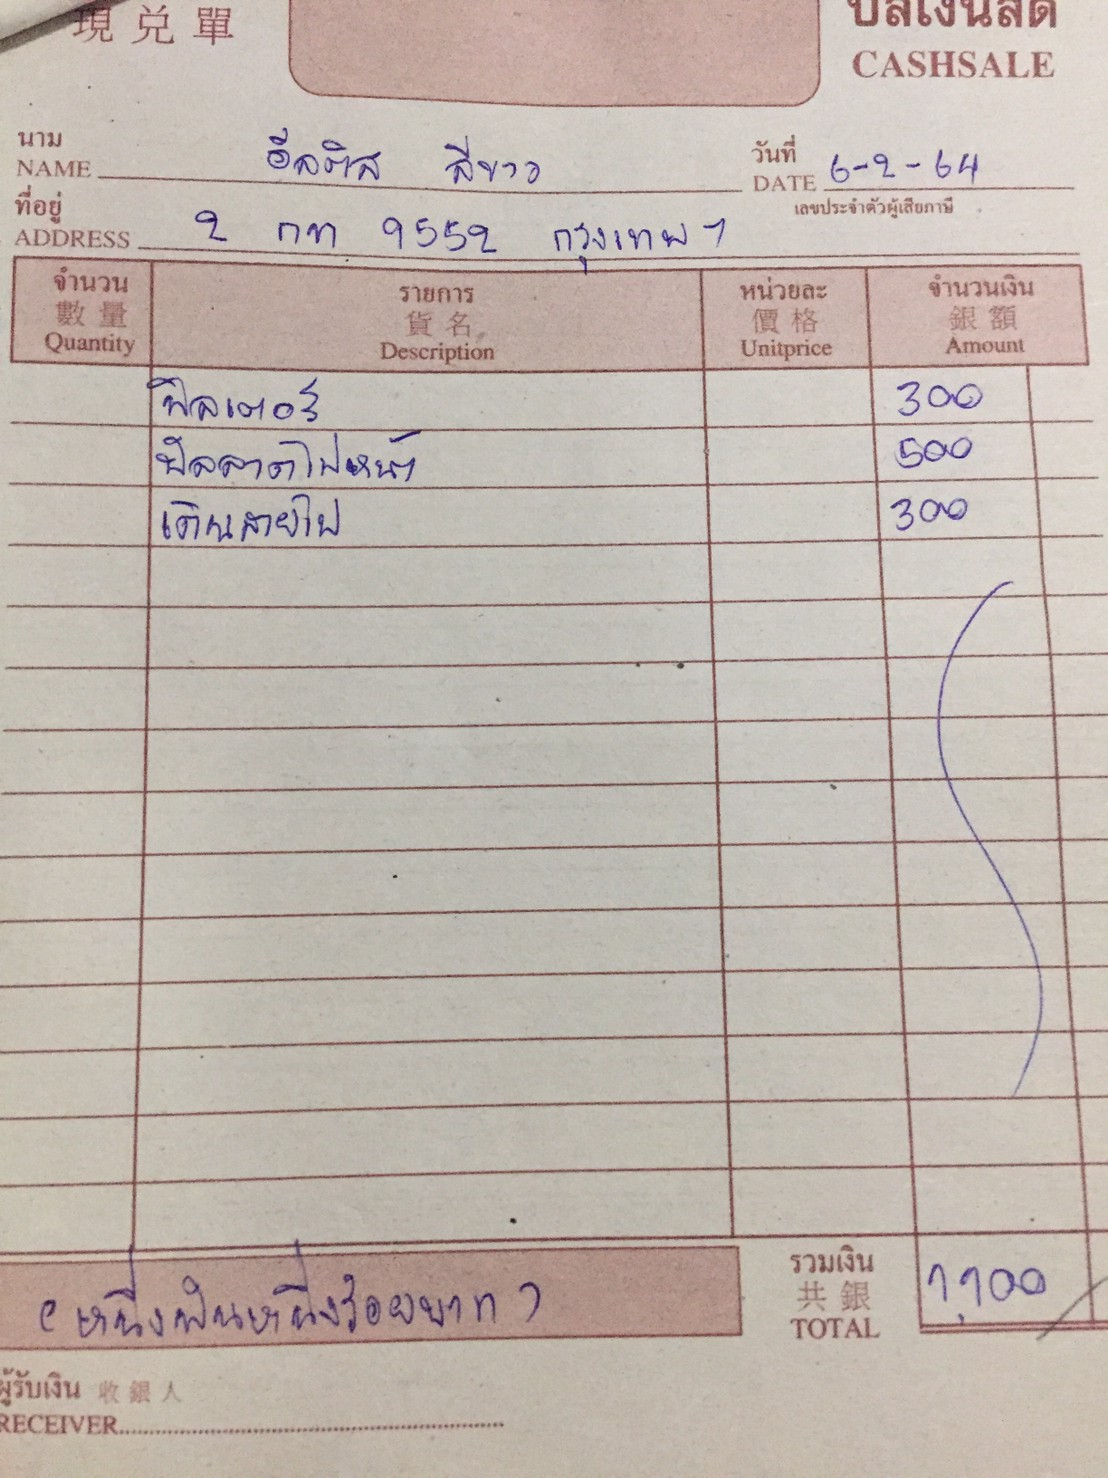 現兑單
บิลเงินสด
CASHSALE
นาม
NAME อัลติส สีขาว
วันที่
DATE 6-2-64
เลขประจำตัวผู้เสียภาษี
ที่อยู่
ADDRESS 2 กท 9552 กรุงเทพฯ
จำนวน รายการ หน่วยละ จำนวนเงิน
數量 貨名 價格 銀額
Quantity Description Unitprice Amount
ฟิลเตอร์ 300
ฟิลลาดไฟหน้า 500
เดินสายไฟ 300
(หนึ่งพันหนึ่งร้อยบาท)
รวมเงิน
共銀
TOTAL 1,100
ผู้รับเงิน 收銀人
RECEIVER